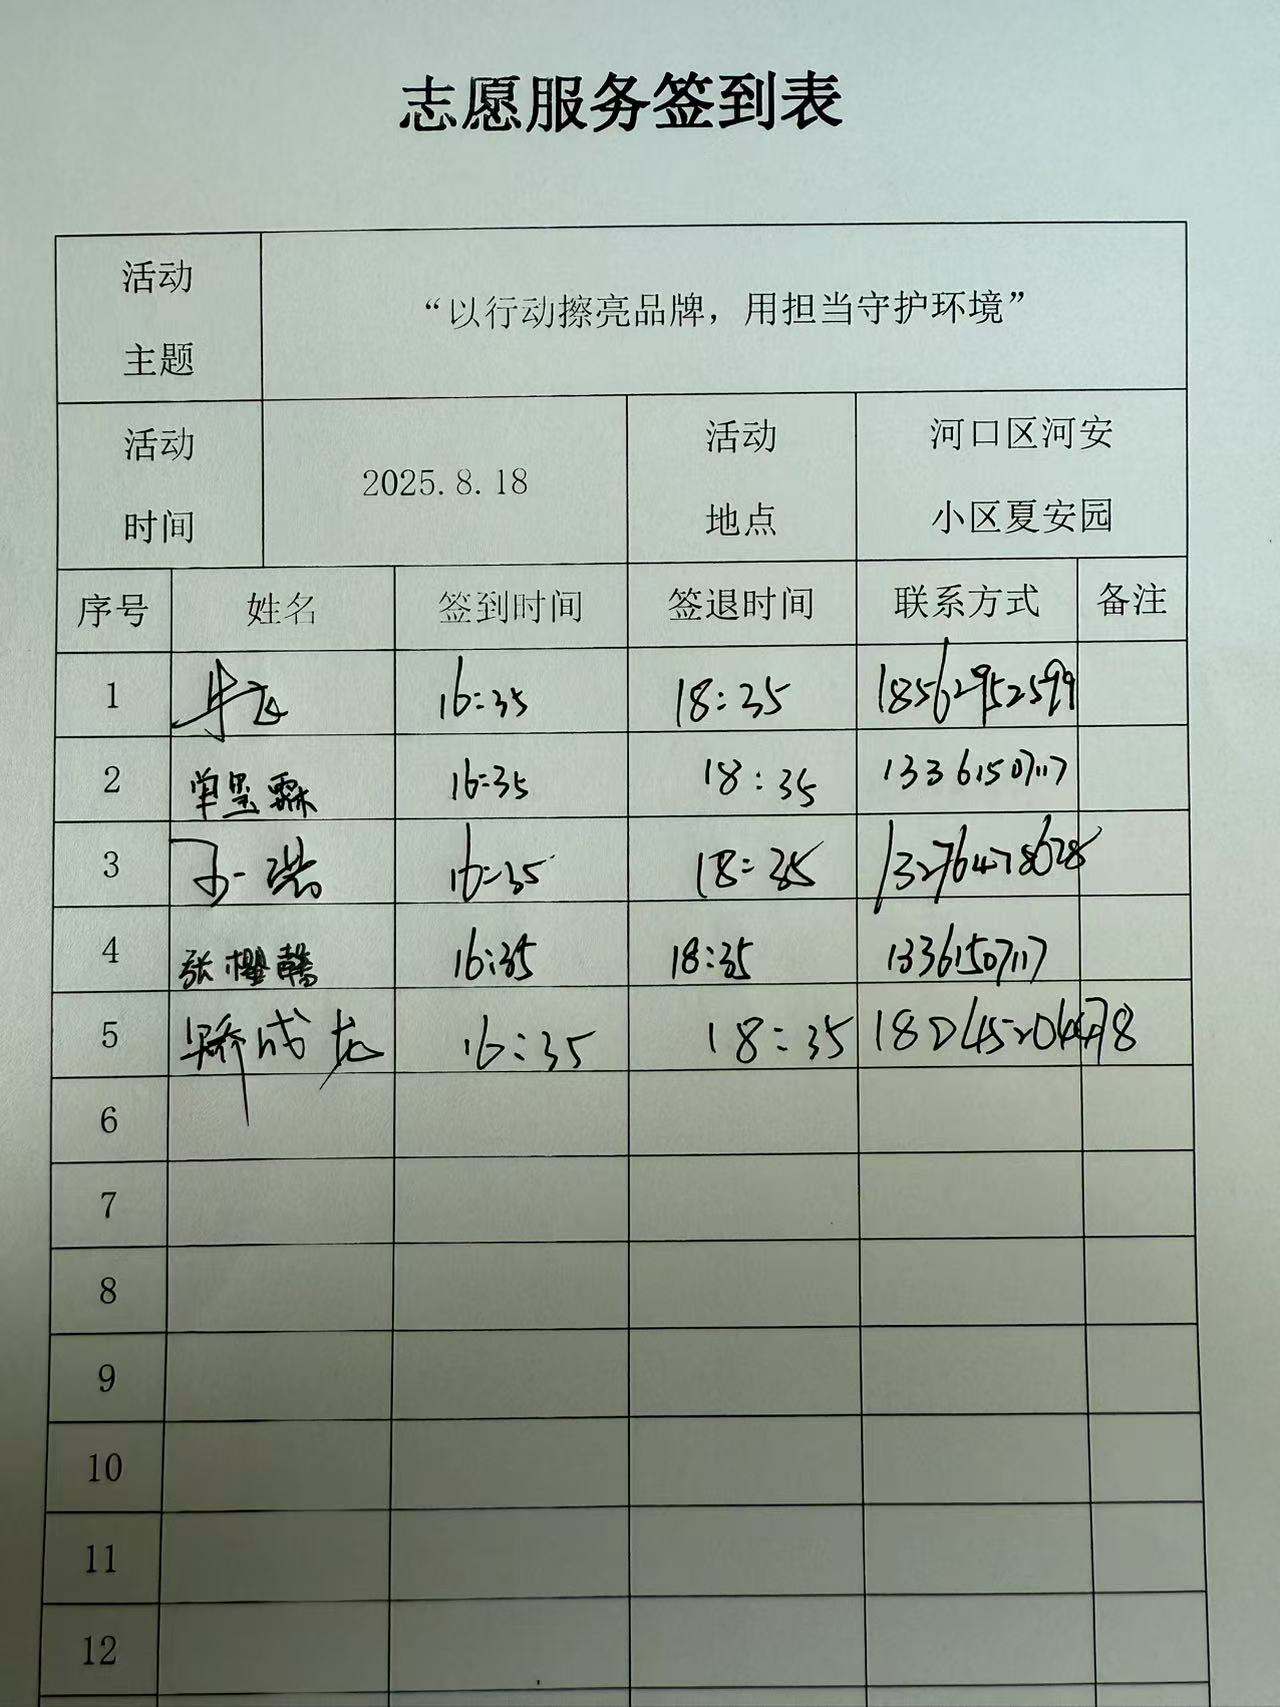 志愿服务签到表
活动主题 “以行动擦亮品牌，用担当守护环境”
活动时间 2025.8.18 活动地点 河口区河安小区夏安园
序号 姓名 签到时间 签退时间 联系方式 备注
1 牟飞 16:35 18:35 18562952599
2 单昱霖 16:35 18:35 13361507117
3 孙一浩 16:35 18:35 13276478628
4 张櫂麟 16:35 18:35 13361507117
5 矫成龙 16:35 18:35
6
7
8
9
10
11
12